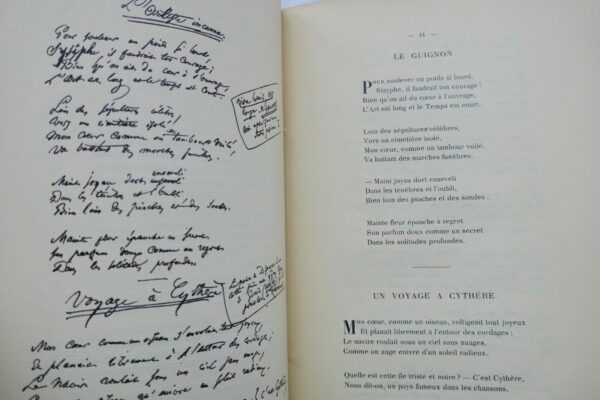 L'artiste inconnu
Pour soulever un poids si lourd
Sisyphe, il faudrait ton courage;
Bien qu'on ait du cœur à l'ouvrage,
L'art est long et le temps est court.
Loin des sépultures célèbres,
Vers un cimetière isolé
Mon cœur comme un tambour voilé
Va battant des marches funèbres.
Maint joyau dort enseveli
Dans les ténèbres et l'oubli
Bien loin des pioches et des sondes.
Mainte fleur épanche en
Son parfum doux comme un
Dans les solitudes profondes
Voyage à Cythère
Mon cœur comme un oiseau s'envolait tout joyeux
Et planait librement à l'entour des cordages;
Le navire roulait sous un ciel sans nuages,
Comme un ange enivré d'un soleil
12
LE GUIGNON
Pour soulever un poids si lourd,
Sisyphe, il faudrait ton courage !
Bien qu'on ait du cœur à l'ouvrage,
L'Art est long et le Temps est court.
Loin des sépultures célèbres,
Vers un cimetière isolé,
Mon cœur, comme un tambour voilé,
Va battant des marches funèbres.
— Maint joyau dort enseveli
Dans les ténèbres et l'oubli,
Bien loin des pioches et des sondes ;
Mainte fleur épanche à regret
Son parfum doux comme un secret
Dans les solitudes profondes.
UN VOYAGE A CYTHÈRE
Mon cœur, comme un oiseau, voltigeait tout joyeux
Et planait librement à l'entour des cordages ;
Le navire roulait sous un ciel sans nuages,
Comme un ange enivré d'un soleil radieux.
Quelle est cette île triste et noire ? — C'est Cythère,
Nous dit-on, un pays fameux dans les chansons,